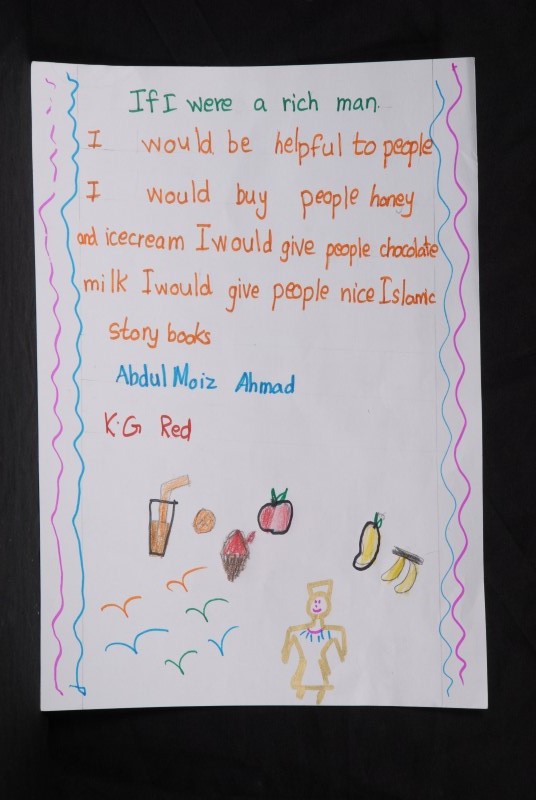 If I were a rich man.
I would be helpful to people
I would buy people honey
and icecream I would give people chocolate
milk I would give people nice Islamic
story books
Abdul Moiz Ahmad
K.G Red